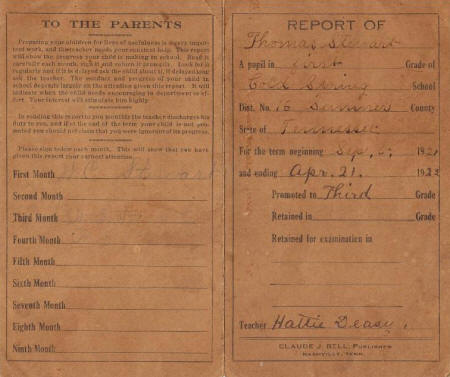 TO THE PARENTS
Preparing your children for lives of usefulness is a very impor-
tant work, and the teacher needs your constant help. This report
will show the progress your child is making in school. Read it
carefully each month, sign it and return it promptly. Look for it
regularly and if it is delayed ask the child about it, if delayed long
ask the teacher. The conduct and progress of your child in
school depends largely on the attention given this report. It will
indicate when the child needs encouraging in department or ef-
fort. Your interest will stimulate him highly.
In sending this report to you monthly the teacher discharges his
duty to you, and if at the end of the term your child is not pro-
moted you should not claim that you were ignorant of its progress.
Please sign below each month. This will show that you have
given this report your earnest attention.
First Month
Second Month
Third Month
Fourth Month
Fifth Month
Sixth Month
Seventh Month
Eighth Month
Ninth Month
REPORT OF
Thomas Stewart
A pupil in first Grade of
Cold Spring School
Dist. No. 16 Sumner County
State of Tennessee
For the term beginning Sep. 5, 1921
and ending Apr. 21. 1922
Promoted to Third Grade
Retained in Grade
Retained for examination in
Teacher Hattie Deasy.
CLAUDE J. BELL, PUBLISHER
NASHVILLE, TENN.